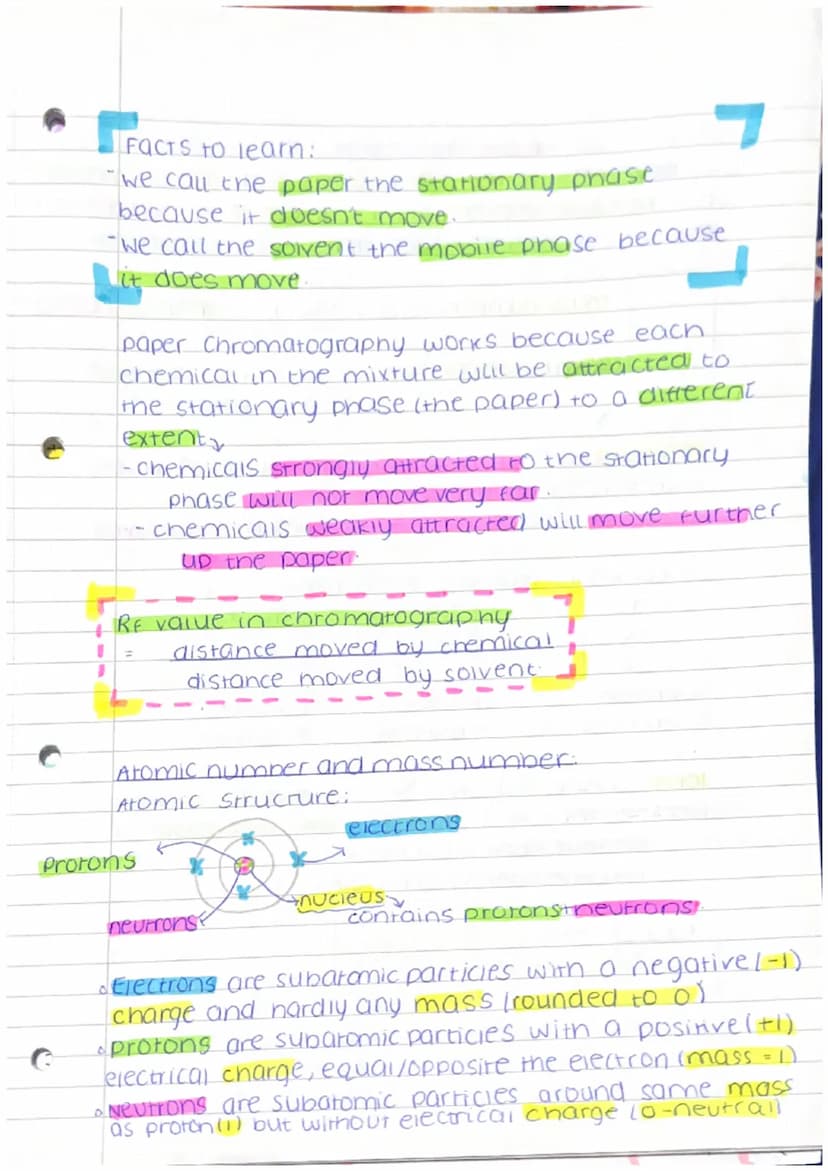 Facts to learn:
-we call the paper the stationary phase
because it doesn't move.
-we call the solvent the mobile phase because
it does move.
paper chromatography works because each
chemical in the mixture will be attracted to
the stationary phase (the paper) to a different
extent
-chemicals strongly attracted to the stationary
phase will not move very far.
-chemicals weakly attracted will move further
up the paper.
RF value in chromatography
= distance moved by chemical
distance moved by solvent.
Atomic number and mass number:
Atomic structure:
electrons
protons
nucleus
neutrons
contains protons+neutrons.
Electrons are subatomic particles with a negative (-1)
charge and hardly any mass (rounded to 0)
protons are subatomic particles with a positive (+1)
electrical charge, equal/opposite the electron (mass = 1)
Neutrons are subatomic particles around same mass
as proton (1) but without electrical charge (0-neutral)